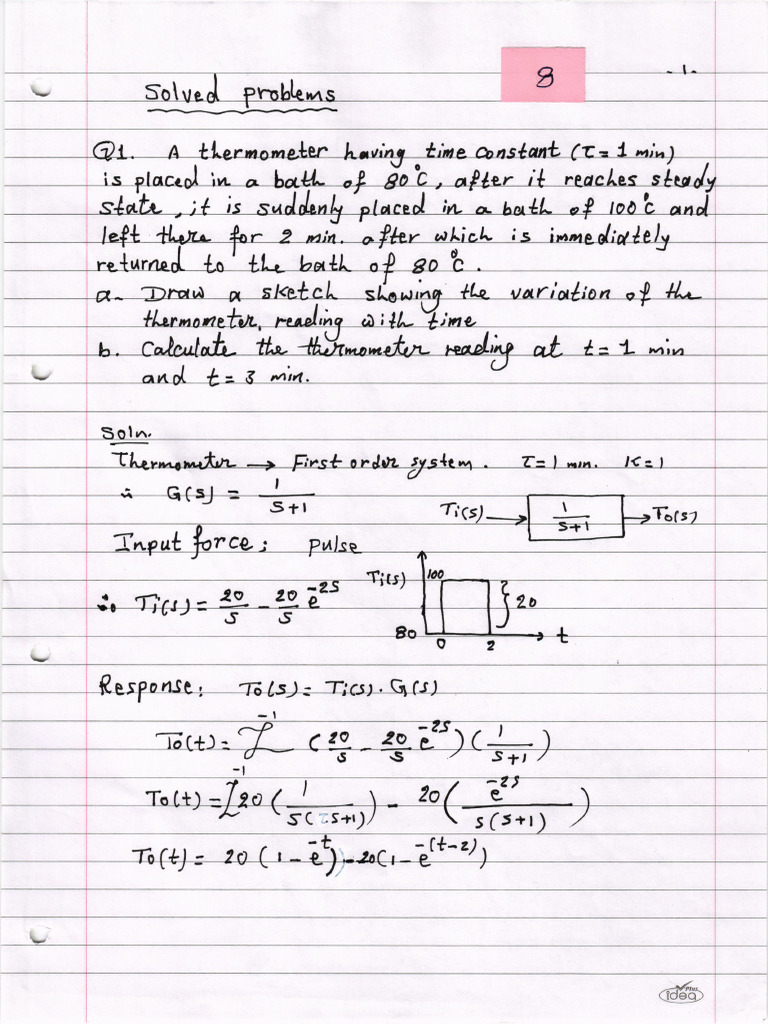 8
-1-
Solved problems
Q1. A thermometer having time constant (τ = 1 min)
is placed in a bath of 80°C, after it reaches steady
state, it is suddenly placed in a bath of 100°C and
left there for 2 min. after which is immediately
returned to the bath of 80°C.
a- Draw a sketch showing the variation of the
thermometer, reading with time
b. Calculate the thermometer reading at t = 1 min
and t = 3 min.
Soln.
Thermometer → First order system. τ = 1 min. K = 1
∴ G(s) = 1/(s+1)
Ti(s) → 1/(s+1) → To(s)
Input force: pulse
Ti(s) 100
∴ Ti(s) = 20/s - 20/s e^-2s
} 20
80 0 2 t
Response: To(s) = Ti(s) . G(s)
To(t) = ℒ^-1 (20/s - 20/s e^-2s)(1/(s+1))
To(t) = ℒ^-1 20 (1/(s(τs+1))) - 20 (e^-2s/(s(s+1)))
To(t) = 20 (1 - e^-t) - 20(1 - e^-(t-2))
Plus
idea